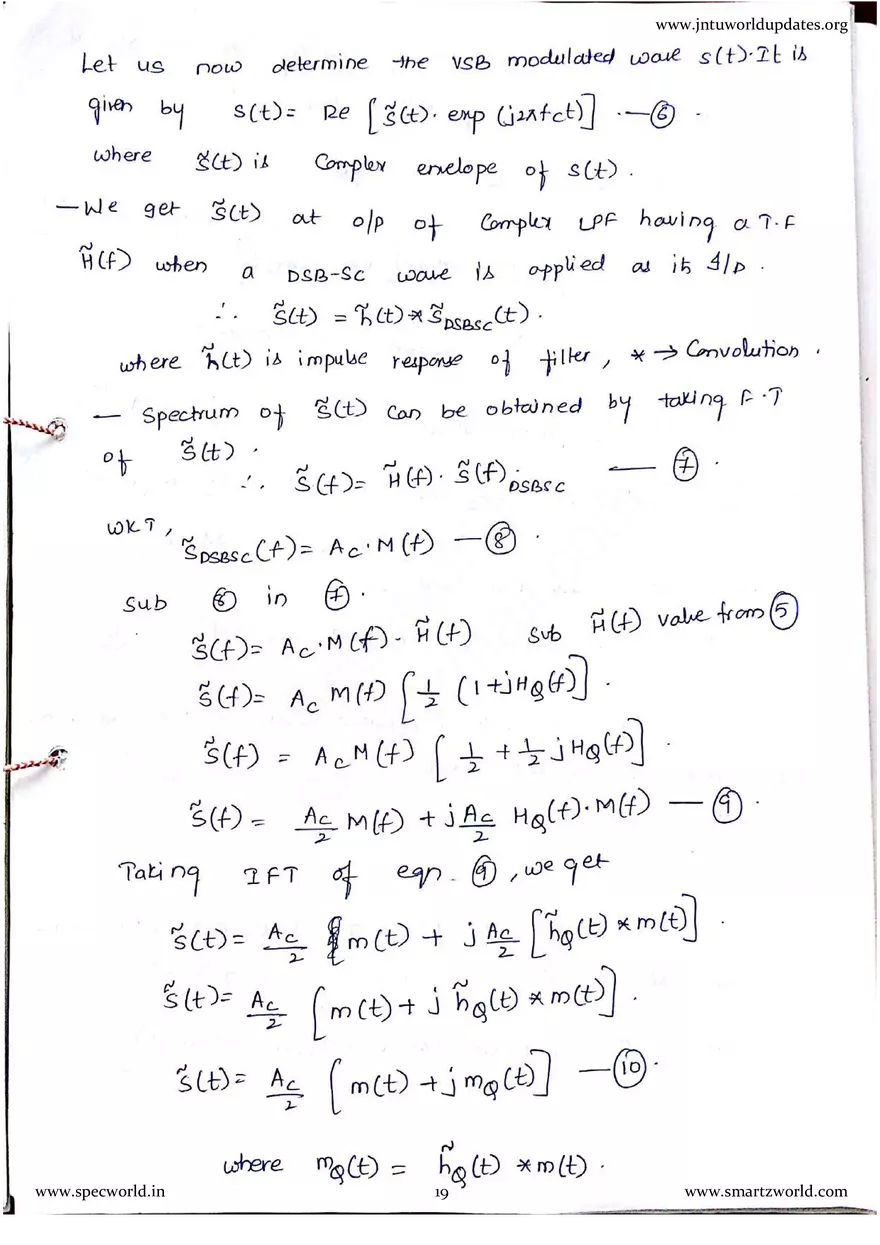 www.jntuworldupdates.org
Let us now determine the VSB modulated wave s(t). It is
given by s(t) = Re [s̃(t). exp (j2πfct)] — ⑥.
where s̃(t) is Complex envelope of s(t).
— We get s̃(t) at o/p of Complex LPF having a T.F
H̃(f) when a DSB-SC wave is applied as its I/P.
∴ s̃(t) = h̃(t) * s̃DSBSC(t).
where h̃(t) is impulse response of filter, * → Convolution.
— Spectrum of s̃(t) can be obtained by taking F.T
of s̃(t).
∴ s̃(f) = H̃(f). s̃(f)DSBSC — ⑦.
WKT,
s̃DSBSC(f) = Ac. M(f) — ⑧.
Sub ⑧ in ⑦.
s̃(f) = Ac. M(f). H̃(f) Sub H̃(f) value from ⑤
s̃(f) = Ac M(f) [1/2 (1+jHQ(f)].
s̃(f) = Ac M(f) [1/2 + 1/2 jHQ(f)].
s̃(f) = Ac/2 M(f) + j Ac/2 HQ(f). M(f) — ⑨.
Taking IFT of eqn. ⑨, we get
s̃(t) = Ac/2 m(t) + j Ac/2 [h̃Q(t) * m(t)].
s̃(t) = Ac/2 [m(t) + j h̃Q(t) * m(t)].
s̃(t) = Ac/2 [m(t) + j mQ(t)] — ⑩.
where mQ(t) = h̃Q(t) * m(t).
www.specworld.in 19 www.smartzworld.com